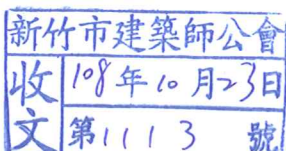 新竹市建築師公會
收文
108年10月23日
第1113號